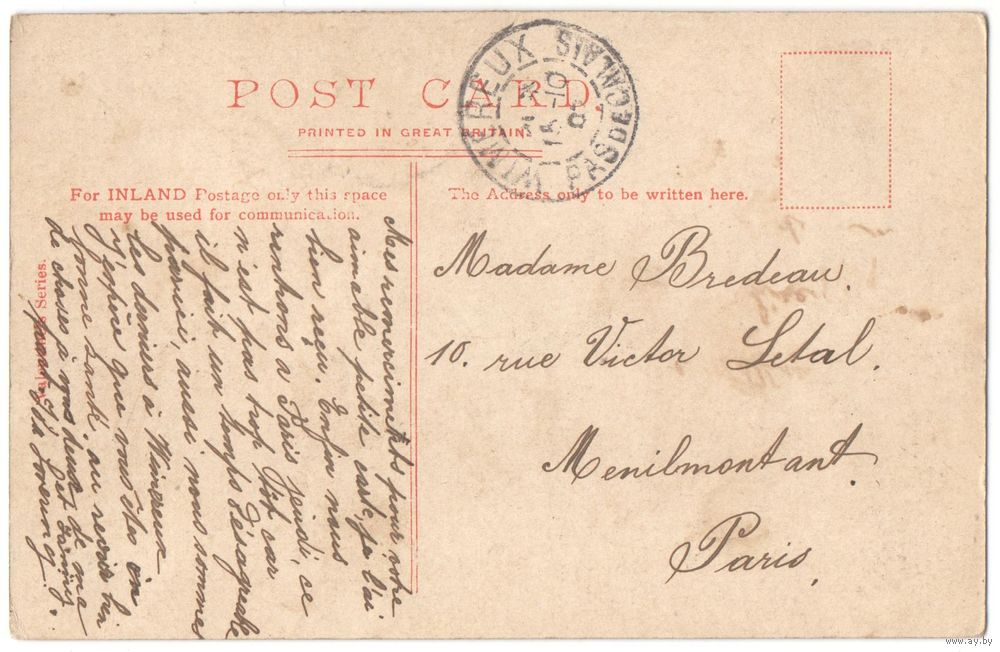 POST CARD.
PRINTED IN GREAT BRITAIN.
WIMEREUX PAS DE CALAIS
15-10
For INLAND Postage only this space
may be used for communication.
The Address only to be written here.
Mes remerciments pour votre
aimable petite carte, je l'ai
bien reçu. Enfin nous
rentrons a Paris jeudi, ce
n'est pas trop tôt car
il fait un temps désagréable
par ici, aussi nous sommes
les derniers à Wimereux
J'espère que vous êtes en
bonne santé. au revoir
de choses à vous deux de ma
part,
Madame Bredeau.
10. rue Victor Letal.
Menilmontant.
Paris.
Valentines Series.
www.ay.by